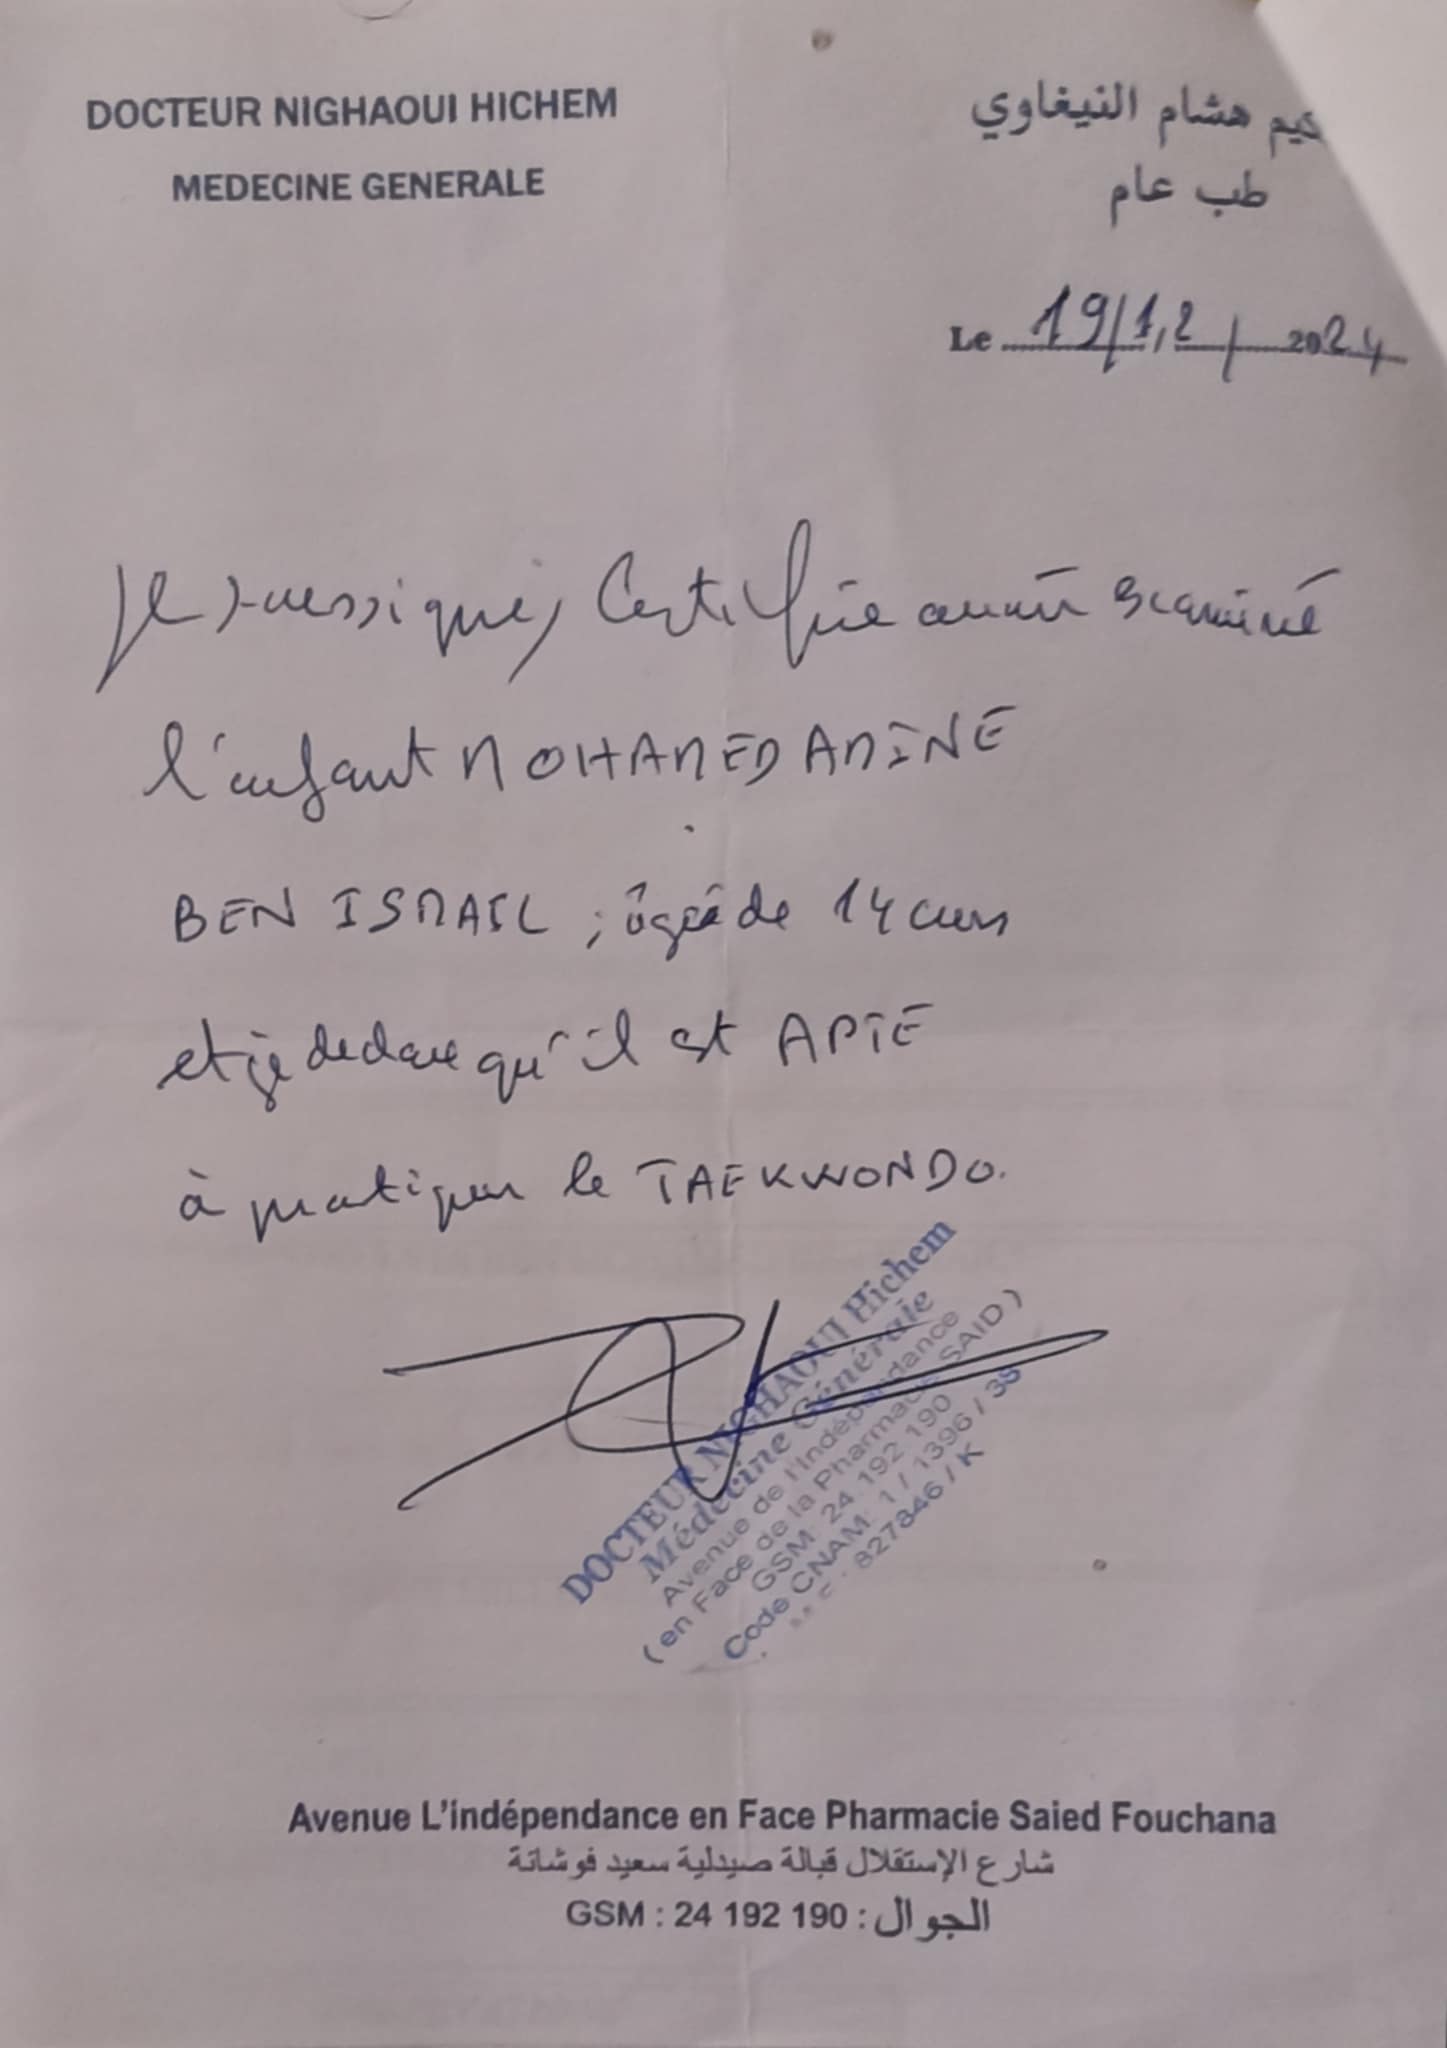 DOCTEUR NIGHAOUI HICHEM
MEDECINE GENERALE
هشام النيغاوي
طب عام
Le 19/12/2024
Je soussigné, Certifie avoir examiné
l'enfant MOHAMED AMINE
BEN ISMAIL ; âgé de 14 ans
et je declare qu'il est APTE
à pratiquer le TAEKWONDO.
DOCTEUR NIGHAOUI Hichem
Médecine Générale
Avenue de l'Indépendance
(en Face de la Pharmacie SAID)
GSM: 24 192 190
Code CNAM: 1 / 1396 / 38
827846 / K
Avenue L'indépendance en Face Pharmacie Saied Fouchana
شارع الإستقلال قبالة صيدلية سعيد فوشانة
GSM : 24 192 190 : الجوال